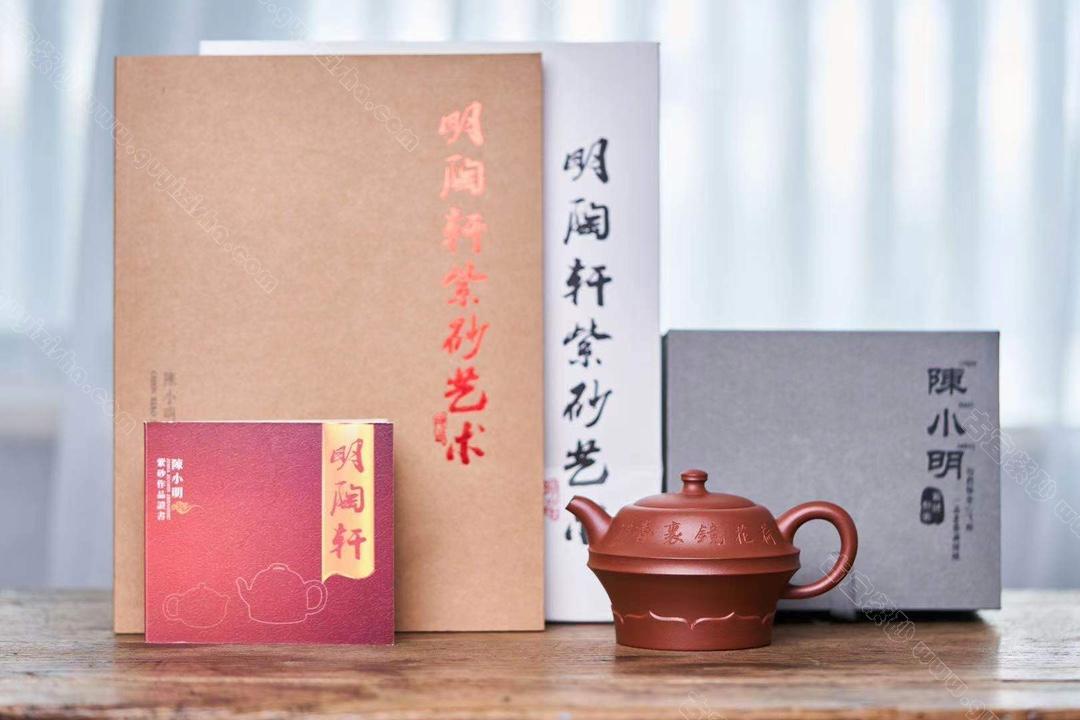 明陶轩紫砂艺术
陳小明
明陶轩紫砂艺
明陶轩
陳小明
紫砂作品證書
陳小明
荷花镜裏香
www.guyizisha.com